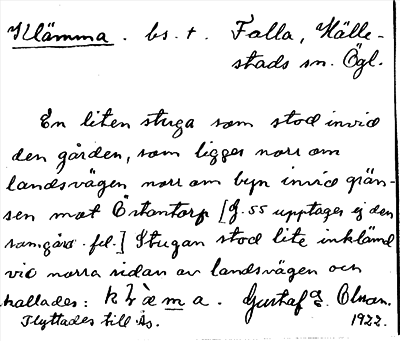 Klämma. bs. t. Falla, Hälle-
stads sn. Ögl.
En liten stuga som stod invid
den gården, som ligger norr om
landsvägen norr om byn invid grän-
sen mot Östantorp [J. 55 upptages ej den
som gård. fel.] Stugan stod lite inklämd
vid norra sidan av landsvägen och
kallades: Gustaf Olson.
Flyttades till Ås. 1922.